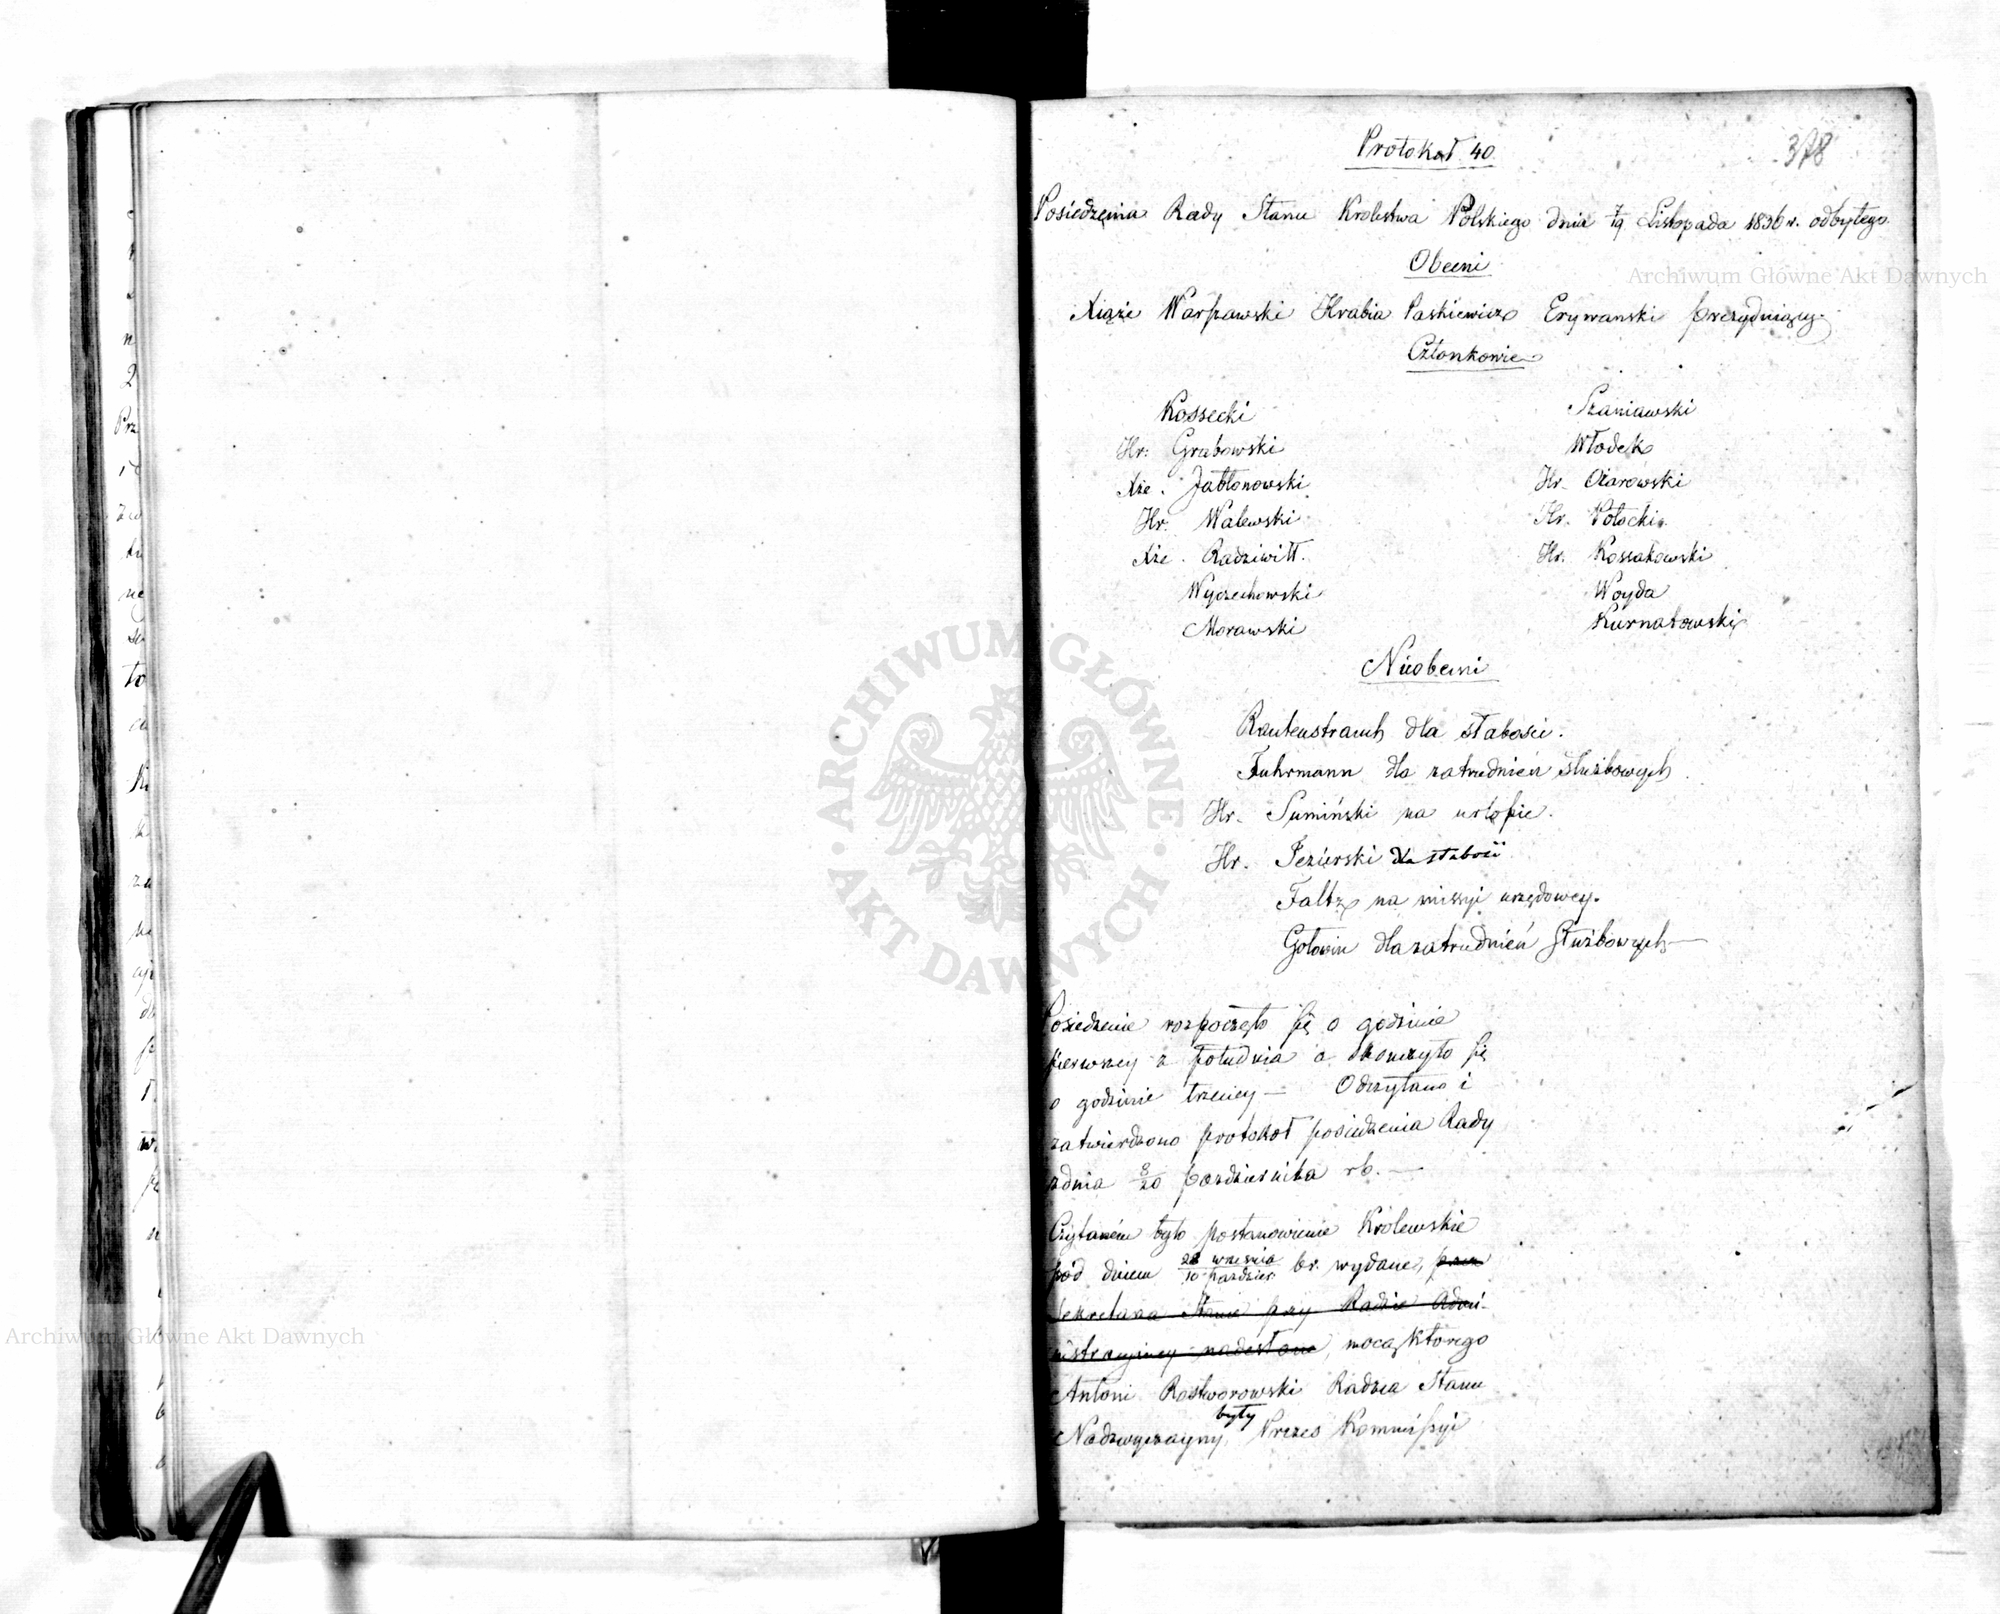 378
Protokoł 40
Posiedzenia Rady Stanu Królestwa Polskiego dnia 7/19 Listopada 1836 r. odbytego.
Obecni
Xiąże Warszawski Hrabia Paskiewicz Erywanski prezyduiący.
Członkowie
Kossecki
Hr: Grabowski
Xże. Jabłonowski
Hr. Walewski
Xże. Radziwiłł.
Wyczechowski
Morawski
Szaniawski
Włodek
Hr. Ożarowski
Hr. Potocki
Hr. Kossakowski
Woyda
Kurnatowski
Nieobecni
Rautenstrauch dla słabości.
Fuhrmann dla zatrudnień służbowych.
Hr. Sumiński na urlopie.
Hr. Jezierski dla słabości
Faltz na missyi urzędowey.
Gołowin dla zatrudnień służbowych —
Posiedzenie rozpoczęło się o godzinie
pierwszey z południa a skończyło się
o godzinie trzeciey — Odczytano i
zatwierdzono protokoł posiedzenia Rady
z dnia 8/20 października rb. —
Czytaném było postanowienie Królewskie
pod dniem 28 września/10 paździer. br. wydane, przez
Sekretarza Stanu przy Radzie Admi-
nistracyiney nadesłane, mocą którego
Antoni Rostworowski Radzca Stanu
Nadzwyczayny, były Prezes Kommissyi
Archiwum Główne Akt Dawnych
Archiwum Główne Akt Dawnych
ARCHIWUM GŁÓWNE AKT DAWNYCH